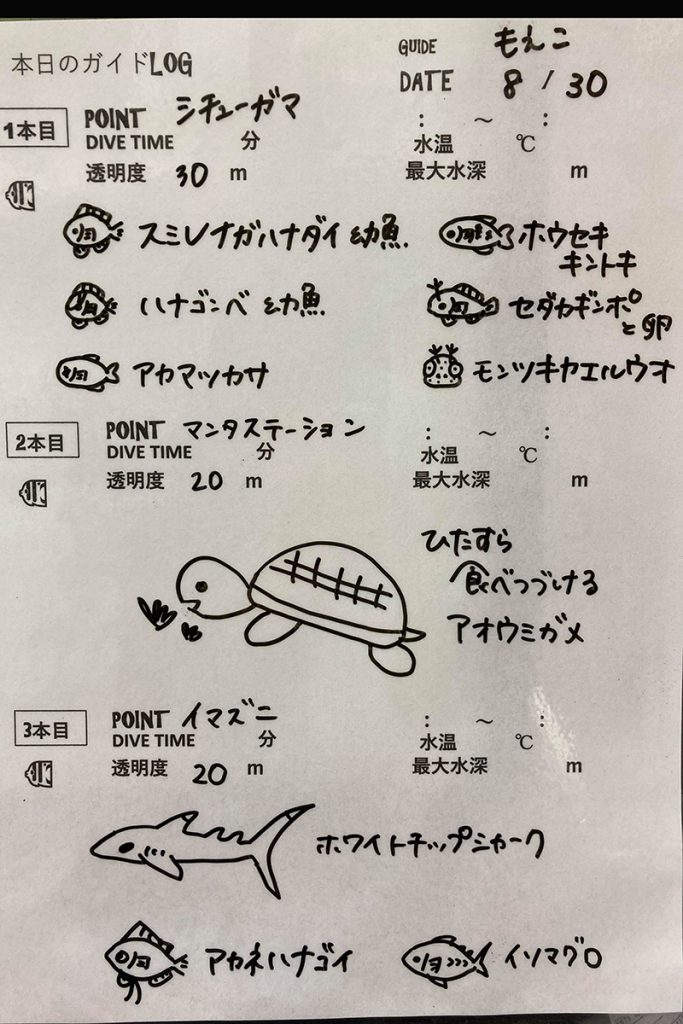 本日のガイドLOG
GUIDE もえこ
DATE 8 / 30
1本目
POINT シチューガマ
DIVE TIME 分
: ~ :
水温 ℃
透明度 30 m
最大水深 m
スミレナガハナダイ 幼魚.
ホウセキ
キントキ
ハナゴンベ 幼魚
セダカギンポ
と卵
アカマツカサ
モンツキカエルウオ
2本目
POINT マンタステーション
DIVE TIME 分
: ~ :
水温 ℃
透明度 20 m
最大水深 m
ひたすら
食べつづける
アオウミガメ
3本目
POINT イマズニ
DIVE TIME 分
: ~ :
水温 ℃
透明度 20 m
最大水深 m
ホワイトチップシャーク
アカネハナゴイ
イソマグロ